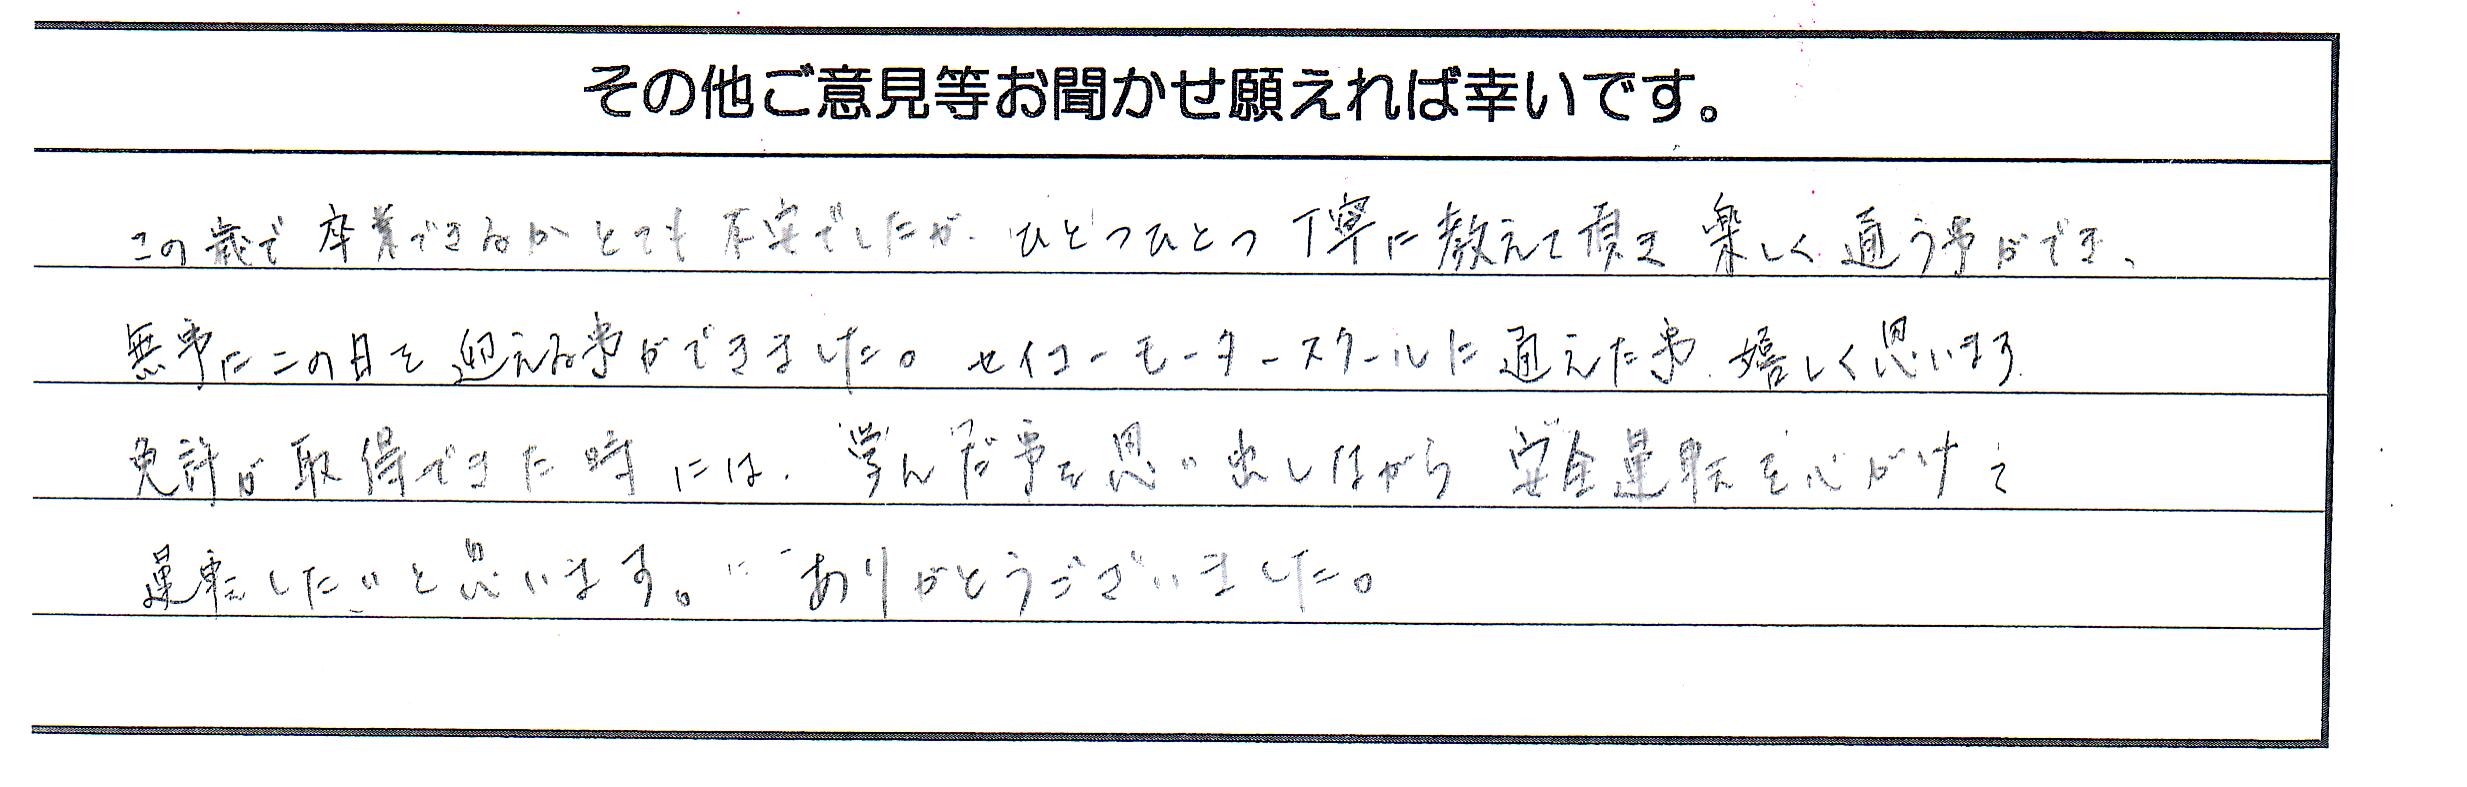 その他ご意見等お聞かせ願えれば幸いです。
この歳で卒業できるかとても不安でしたが、ひとつひとつ丁寧に教えて頂き楽しく通う事ができ、
無事にこの日を迎える事ができました。セイコーモータースクールに通えた事、嬉しく思います。
免許が取得できた時には、学んだ事を思い出しながら安全運転を心がけて
運転したいと思います。ありがとうございました。